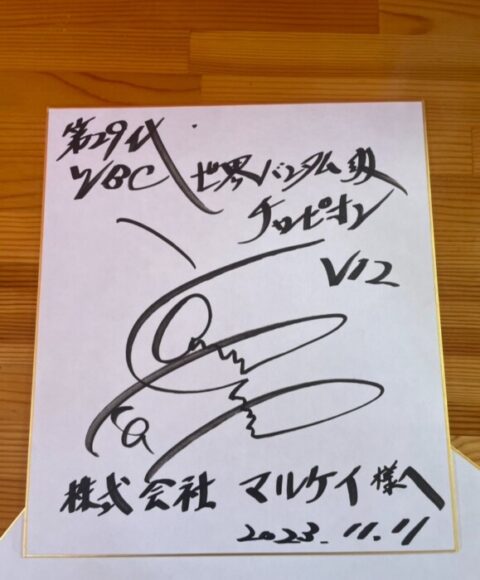 第29代
WBC 世界バンタム級
チャンピオン
V12
株式会社 マルケイ様へ
2023.11.11